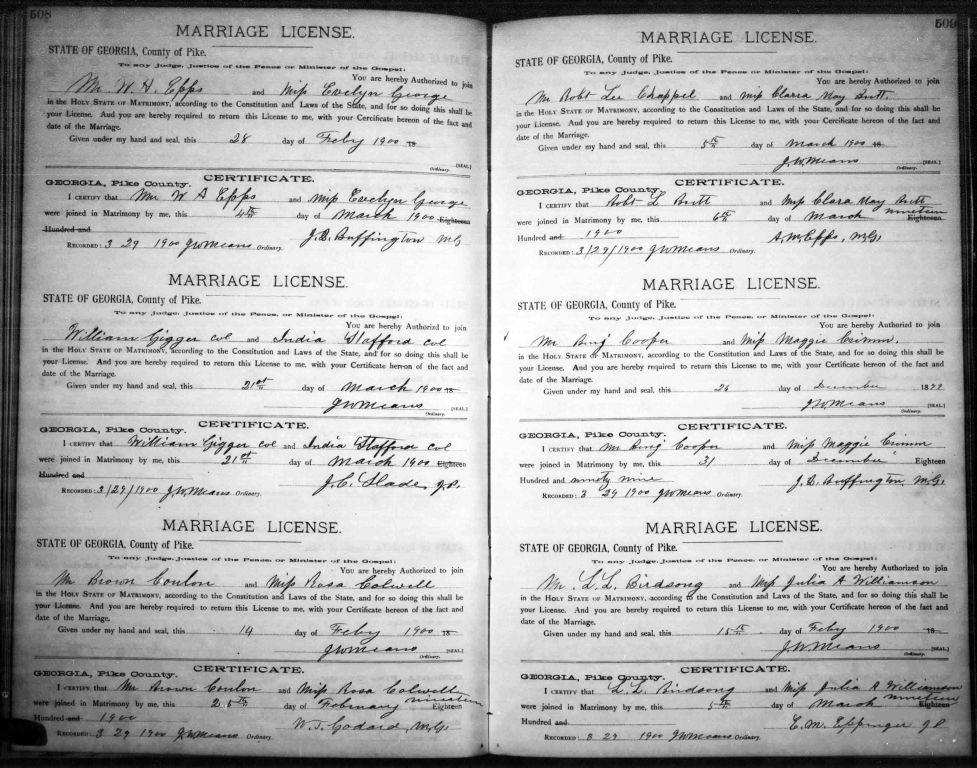 508
MARRIAGE LICENSE.
STATE OF GEORGIA, County of Pike.
To any Judge, Justice of the Peace, or Minister of the Gospel:
You are hereby Authorized to join
Mr. W. A. Epps and Miss Evelyn George
in the HOLY STATE OF MATRIMONY, according to the Constitution and Laws of the State, and for so doing this shall be
your License. And you are hereby required to return this License to me, with your Certificate hereon of the fact and
date of the Marriage.
Given under my hand and seal, this 28 day of Feby 1900 18
[SEAL]
Ordinary.
CERTIFICATE.
GEORGIA, Pike County.
I CERTIFY that Mr W A Epps and Miss Evelyn George
were joined in Matrimony by me, this 4th day of March 1900 Eighteen
Hundred and
J. B. Buffington MG
RECORDED: 3 29 1900 JWMeans Ordinary.
MARRIAGE LICENSE.
STATE OF GEORGIA, County of Pike.
To any Judge, Justice of the Peace, or Minister of the Gospel:
You are hereby Authorized to join
William Gigger col and India Stafford col
in the HOLY STATE OF MATRIMONY, according to the Constitution and Laws of the State, and for so doing this shall be
your License. And you are hereby required to return this License to me, with your Certificate hereon of the fact and
date of the Marriage.
Given under my hand and seal, this 21st day of March 1900 18
JWMeans [SEAL]
Ordinary.
CERTIFICATE.
GEORGIA, Pike County.
I CERTIFY that William Gigger col and India Stafford col
were joined in Matrimony by me, this 21st day of March 1900 Eighteen
Hundred and
J. C. Slade J.P.
RECORDED: 3/29/1900 JWMeans Ordinary.
MARRIAGE LICENSE.
STATE OF GEORGIA, County of Pike.
To any Judge, Justice of the Peace, or Minister of the Gospel:
You are hereby Authorized to join
Mr Brown Conlon and Miss Rosa Colwell
in the HOLY STATE OF MATRIMONY, according to the Constitution and Laws of the State, and for so doing this shall be
your License. And you are hereby required to return this License to me, with your Certificate hereon of the fact and
date of the Marriage.
Given under my hand and seal, this 14 day of Feby 1900 18
JWMeans [SEAL]
Ordinary.
CERTIFICATE.
GEORGIA, Pike County.
I CERTIFY that Mr Brown Conlon and Miss Rosa Colwell
were joined in Matrimony by me, this 25th day of February nineteen Eighteen
Hundred and 1900
W. T. Godard, M.G.
RECORDED: 3 29 1900 JWMeans Ordinary.
509
MARRIAGE LICENSE.
STATE OF GEORGIA, County of Pike.
To any Judge, Justice of the Peace, or Minister of the Gospel:
You are hereby Authorized to join
Mr Robt Lee Chappel and Miss Clara May Butt
in the HOLY STATE OF MATRIMONY, according to the Constitution and Laws of the State, and for so doing this shall be
your License. And you are hereby required to return this License to me, with your Certificate hereon of the fact and
date of the Marriage.
Given under my hand and seal, this 5th day of March 1900 18
J.W.Means [SEAL]
Ordinary.
CERTIFICATE.
GEORGIA, Pike County.
I CERTIFY that Robt L Butt and Miss Clara May Butt
were joined in Matrimony by me, this 6th day of March nineteen Eighteen
Hundred and 1900
A. M. Epps, M.G.
RECORDED: 3/29/1900 JWMeans Ordinary.
MARRIAGE LICENSE.
STATE OF GEORGIA, County of Pike.
To any Judge, Justice of the Peace, or Minister of the Gospel:
You are hereby Authorized to join
Mr Benj Cooper and Miss Maggie Crimm.
in the HOLY STATE OF MATRIMONY, according to the Constitution and Laws of the State, and for so doing this shall be
your License. And you are hereby required to return this License to me, with your Certificate hereon of the fact and
date of the Marriage.
Given under my hand and seal, this 26 day of December 1899
JWMeans [SEAL]
Ordinary.
CERTIFICATE.
GEORGIA, Pike County.
I CERTIFY that Mr Benj Cooper and Miss Maggie Crimm
were joined in Matrimony by me, this 31 day of December Eighteen
Hundred and ninety nine
J. B. Buffington, M.G.
RECORDED: 3 29 1900 JWMeans Ordinary.
MARRIAGE LICENSE.
STATE OF GEORGIA, County of Pike.
To any Judge, Justice of the Peace, or Minister of the Gospel:
You are hereby Authorized to join
Mr. L. L. Birdsong and Miss Julia A Williamson
in the HOLY STATE OF MATRIMONY, according to the Constitution and Laws of the State, and for so doing this shall be
your License. And you are hereby required to return this License to me, with your Certificate hereon of the fact and
date of the Marriage.
Given under my hand and seal, this 15th day of Feby 1900 18
JWMeans [SEAL]
Ordinary.
CERTIFICATE.
GEORGIA, Pike County.
I CERTIFY that L. L. Birdsong and Miss Julia A Williamson
were joined in Matrimony by me, this 5th day of March nineteen Eighteen
Hundred and
C. M. Eppinger J P
RECORDED: 3 29 1900 JWMeans Ordinary.